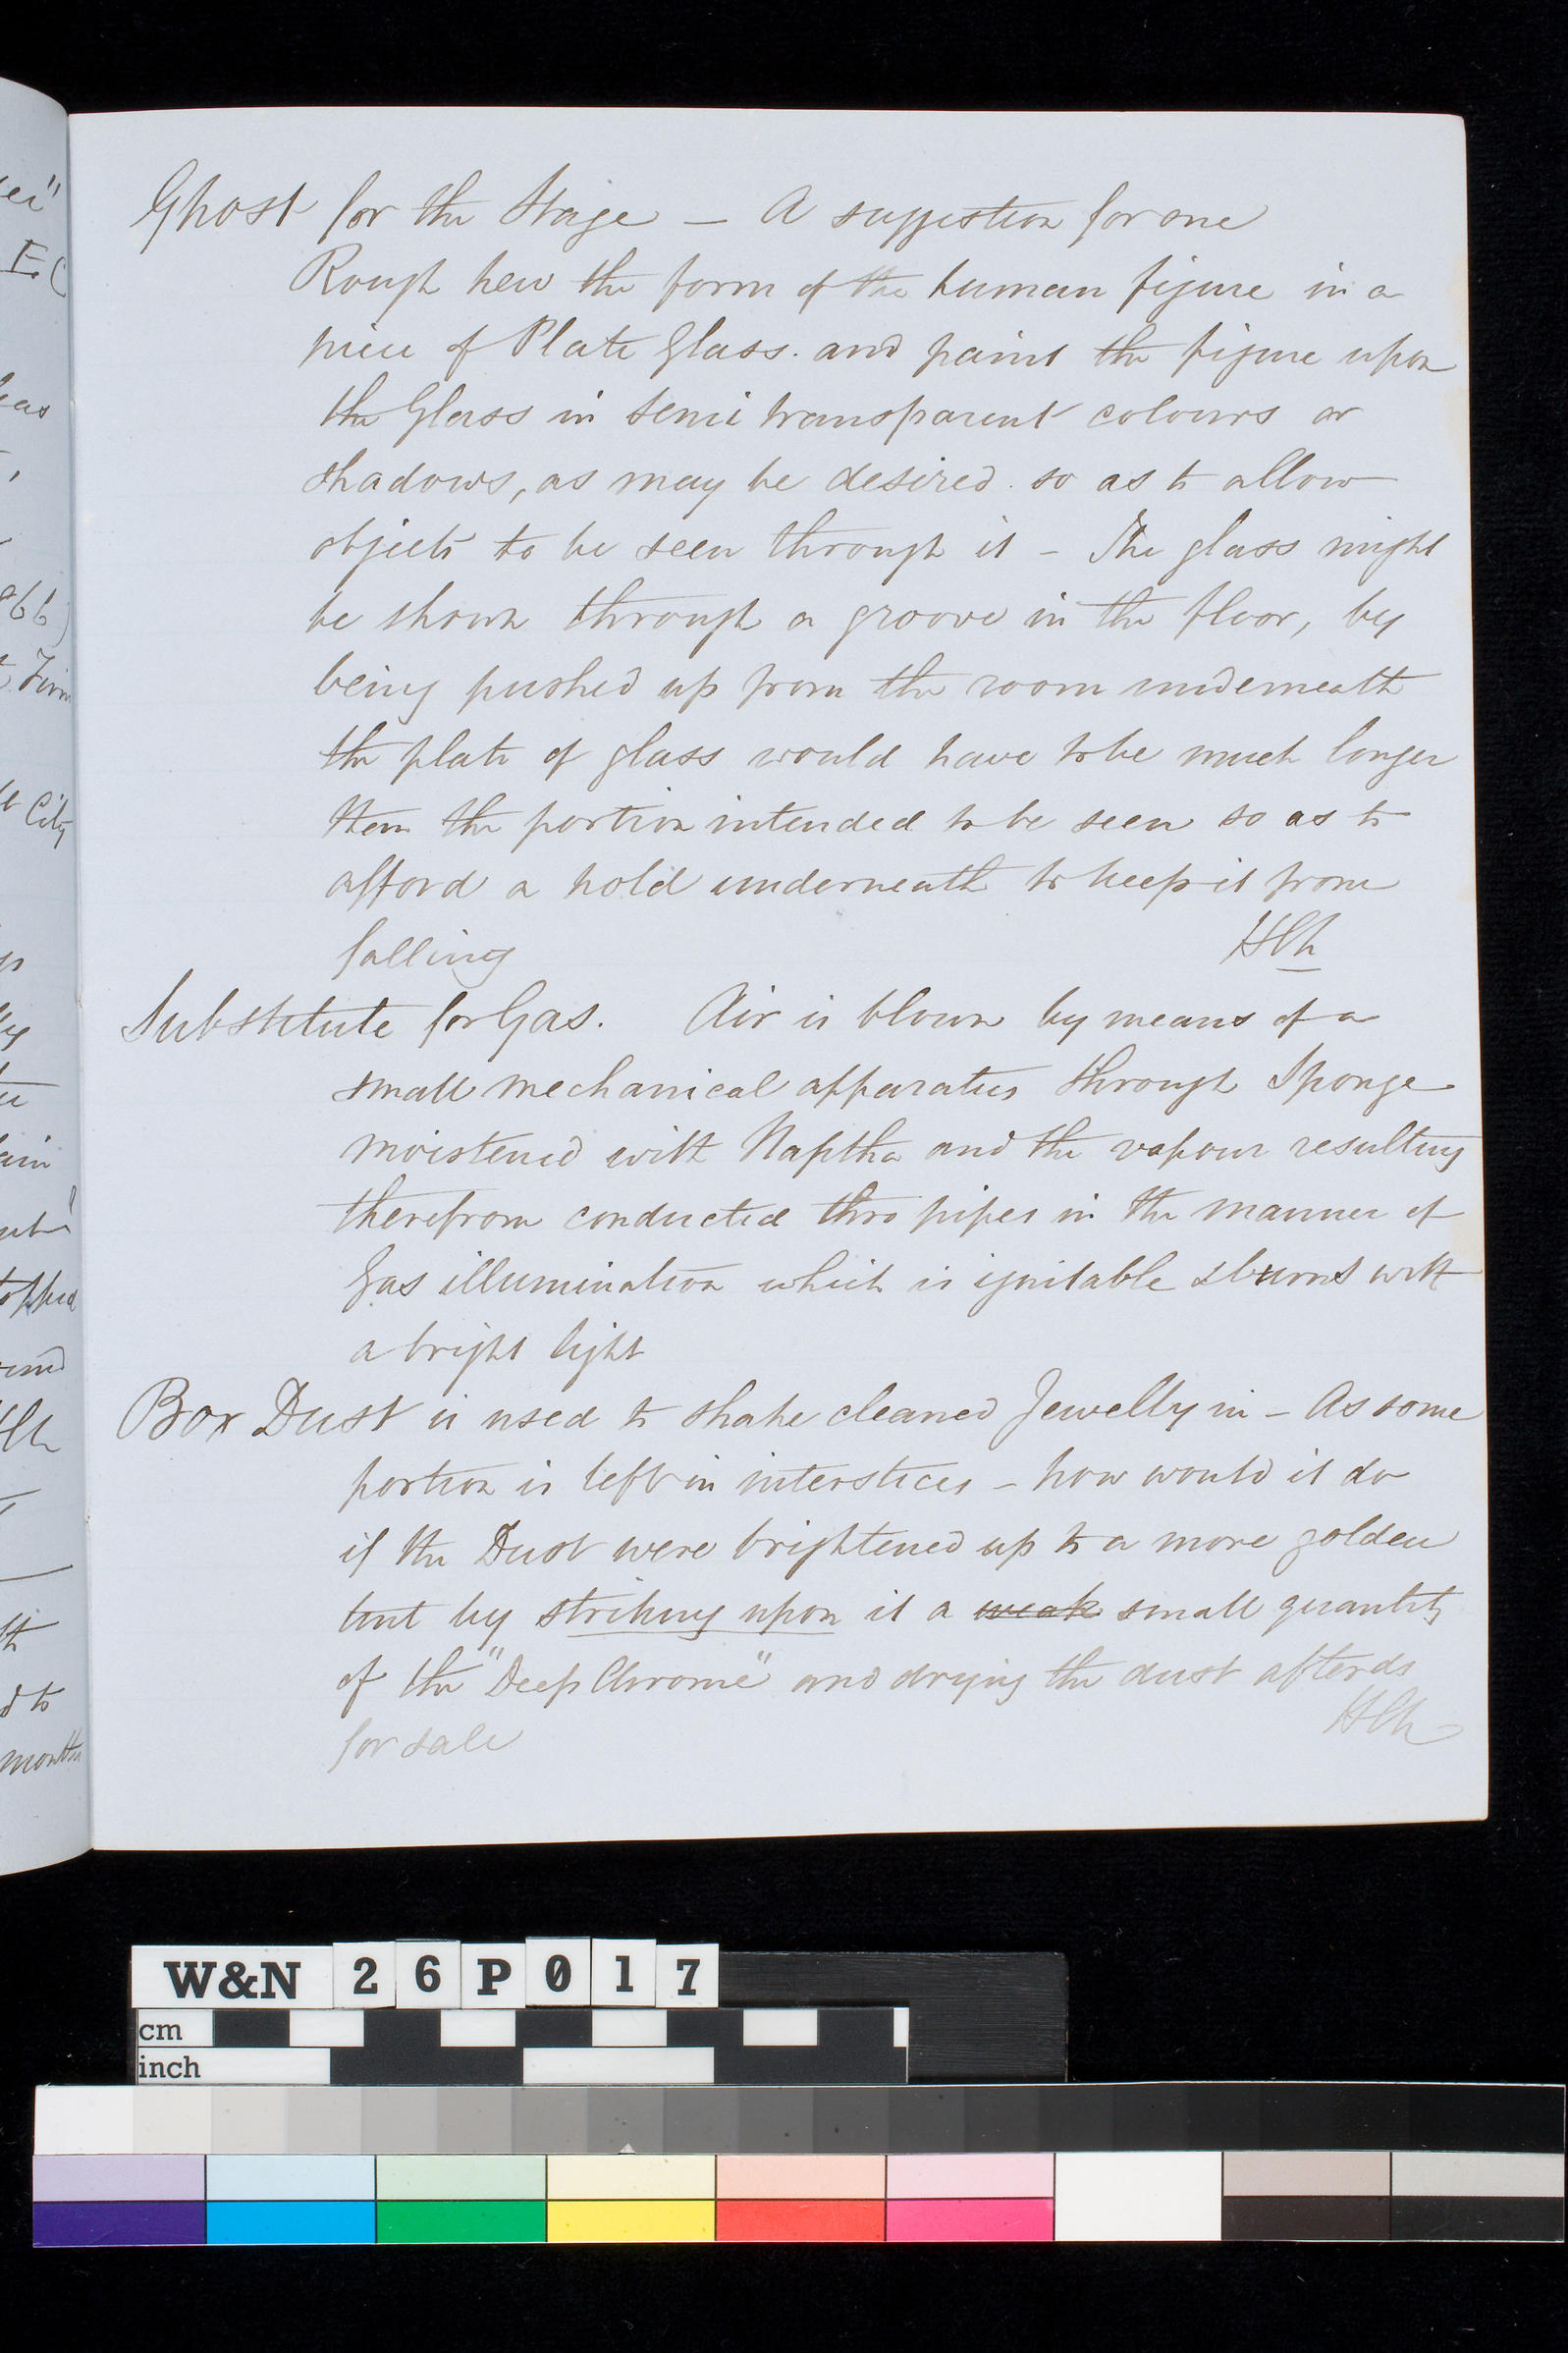 Ghost for the Stage — A suggestion for one
Rough hew the form of the human figure in a
piece of Plate Glass. and paint the figure upon
the Glass in semi transparent colours or
shadows, as may be desired. so as to allow
objects to be seen through it – The glass might
be shown through a groove in the floor, by
being pushed up from the room underneath
the plate of glass would have to be much longer
than the portion intended to be seen so as to
afford a hold underneath to keep it from
falling
Substitute for Gas. Air is blown by means of a
small mechanical apparatus through Sponge
moistened with Naptha and the vapour resulting
therefrom conducted thro pipes in the manner of
Gas illumination which is ignitable & burns with
a bright light
Box Dust is used to shake cleaned Jewelly in – As some
portion is left in interstices – how would it do
if the Dust were brightened up to a more golden
tint by striking upon it a weak small quantity
of the "Deep Chrome" and drying the dust afterds
for sale
City
to
month
W&N 26P017
cm
inch